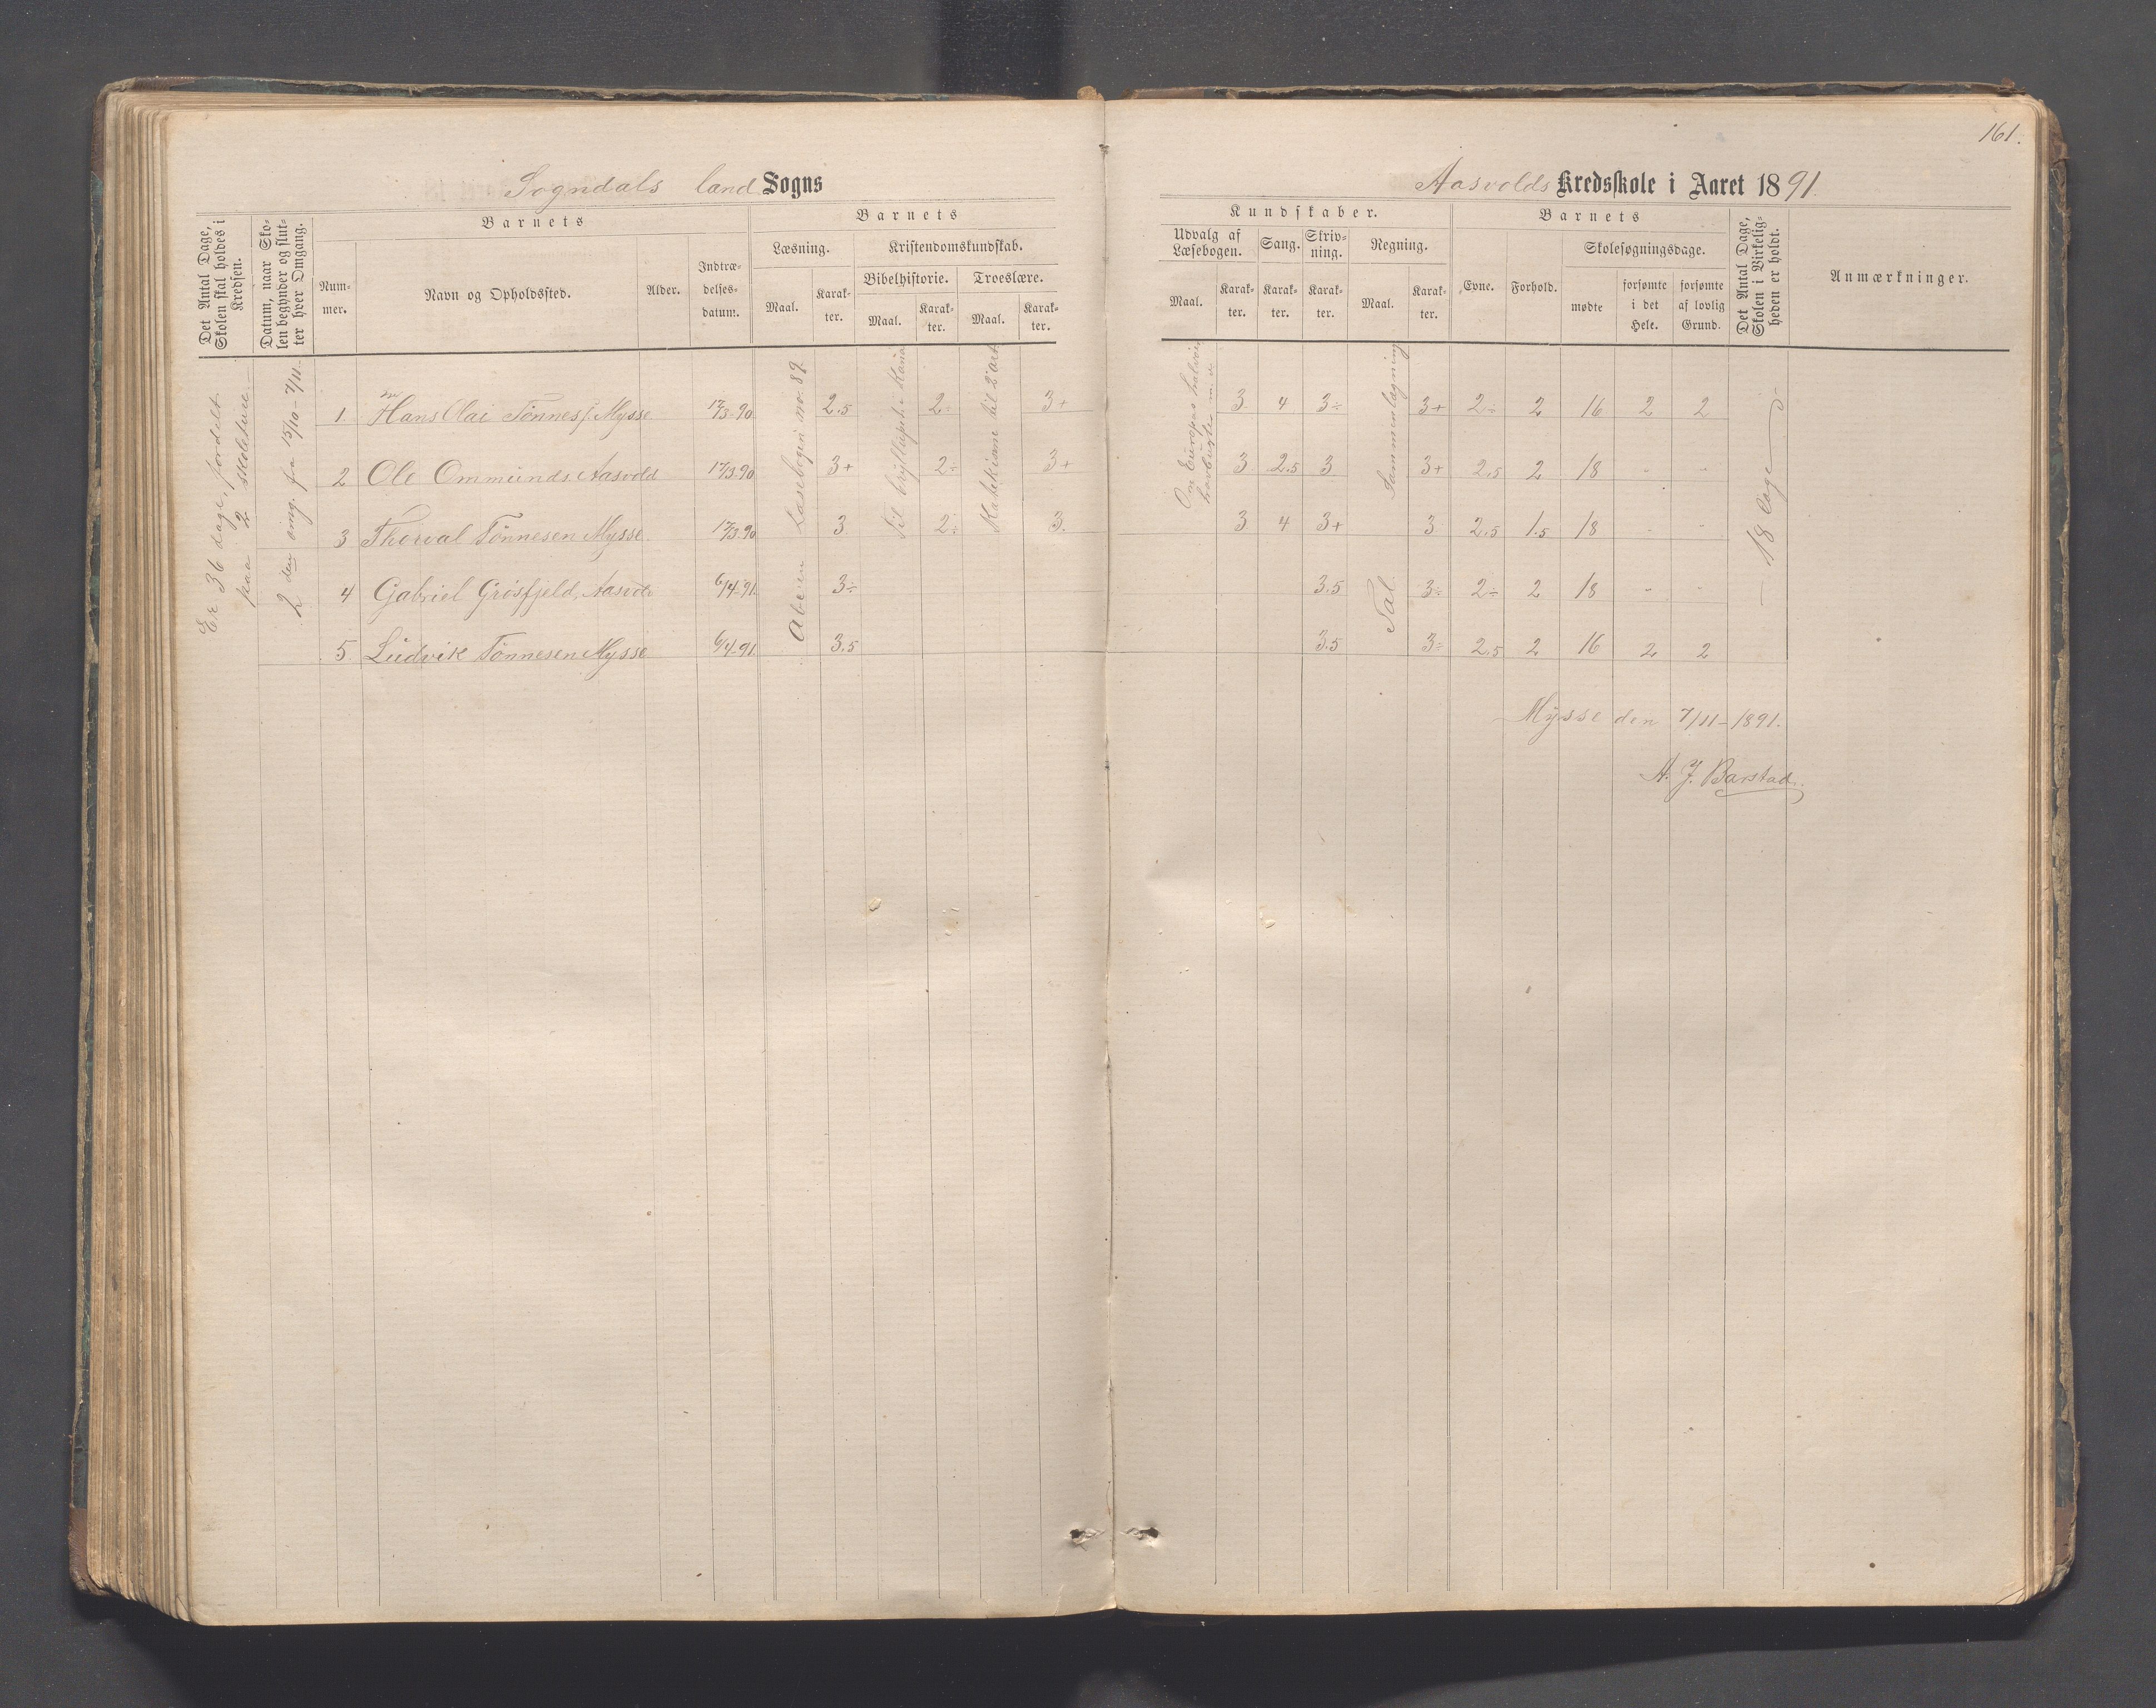 161.
Sogndals land Sogns
Aasvolds Kredsskole i Aaret 1891.
Det Antal Dage, Skolen skal holdes i Kredsen.
Datum, naar Skolen begynder og slutter hver Omgang.
Barnets
Nummer.
Navn og Opholdssted.
Alder.
Indtrædelsesdatum.
Barnets
Læsning.
Maal.
Karakter.
Kristendomskundskab.
Bibelhistorie.
Maal.
Karakter.
Troeslære.
Maal.
Karakter.
Kundskaber.
Udvalg af Læsebogen.
Maal.
Karakter.
Sang.
Karakter.
Skrivning.
Karakter.
Regning.
Maal.
Karakter.
Barnets
Evne.
Forhold.
Skolesøgningsdage.
mødte
forsømte i det Hele.
forsømte af lovlig Grund.
Det Antal Dage, Skolen i Virkeligheden er holdt.
Anmærkninger.
Er 36 dage, fordelt
paa 2 skoleture
2 den omg. fra 15/10 - 7/11
Læsebogen no. 89
Abcen
Til bryllupet i Kana
Katekisme til 2 art.
Om Europas halvøer
havbugter m. v.
Sammenlægning
Tal
18 dage
1. Hans Olai Tønnes. Mysse 17/3-90 2.5 2÷ 3+ 3 4 3÷ 3+ 2÷ 2 16 2 2
2 Ole Ommunds. Aasvold 17/3-90 3+ 2÷ 3+ 3 2.5 3 3+ 2.5 2 18 - -
3 Thorval Tønnesen Mysse 17/3-90 3 2÷ 3. 3 4 3+ 3 2.5 1.5 18 - -
4 Gabriel Grøsfjeld, Aasvold 6/4-91 3÷ 3.5 3÷ 2÷ 2 18 - -
5 Ludvik Tønnesen Mysse 6/4-91 3.5 3.5 3÷ 2.5 2 16 2 2
Mysse den 7/11-1891.
A. J. Barstad.